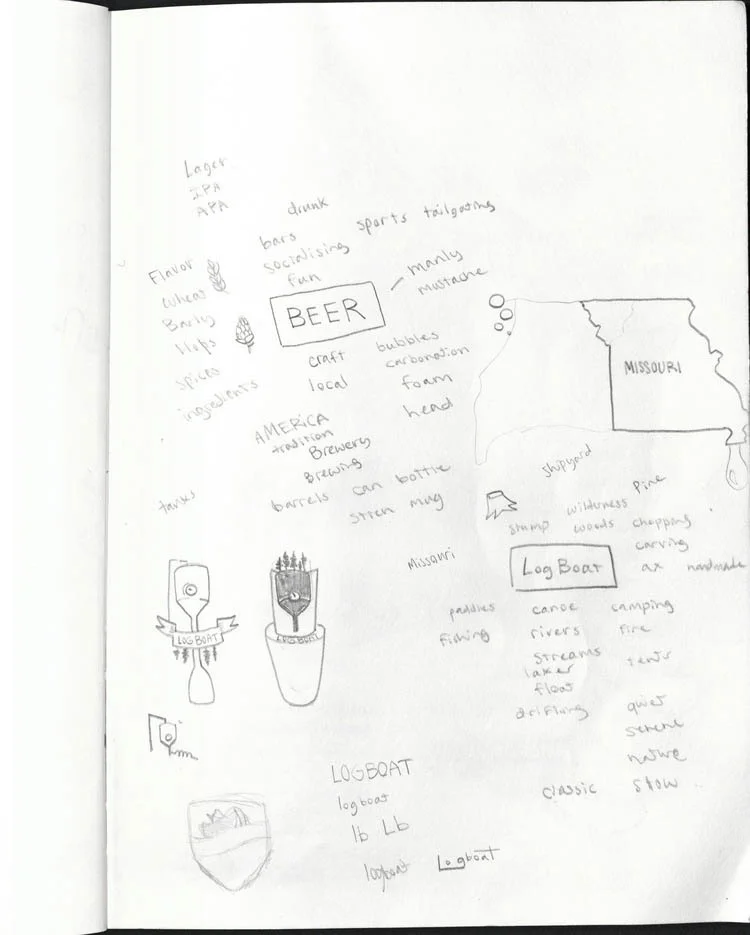 Lager
IPA
APA
drunk
sports tailgating
bars
socialising
fun
Flavor
Wheat
Barly
Hops
Spices
ingredients
manly
mustache
BEER
craft
local
bubbles
carbonation
foam
head
MISSOURI
AMERICA
tradition
Brewery
Brewing
barrels can bottle
mug
Shipyard
Pine
wilderness
stump woods chopping
carving
Missouri
LogBoat
ax handmade
paddles canoe camping
fishing rivers fire
streams
lakes
tents
float
drifting
quiet
serene
nature
classic slow
LOGBOAT
LOGBOAT
LOGBOAT
logboat
lb Lb
logboat Logboat